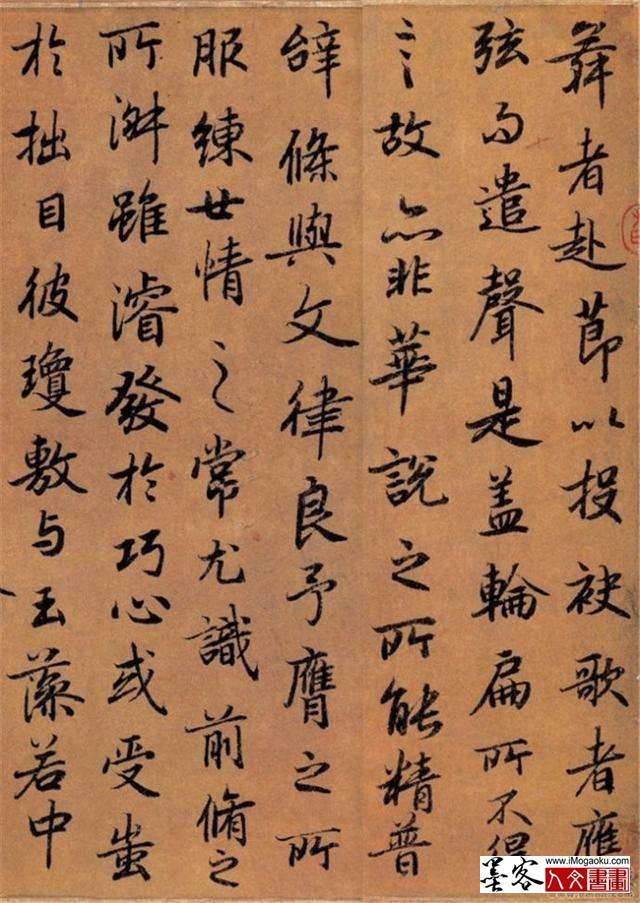 舞者赴莭以投袂歌者應
弦而遣聲是盖輪扁所不得
言故亦非華說之所能精普
辝條與文律良予膺之所
服練世情之常尤識前脩之
所淑雖濬發於巧心或受蚩
於拙目彼瓊敷与玉藻若中
www.iMogaoku.com
墨客 人文書畫